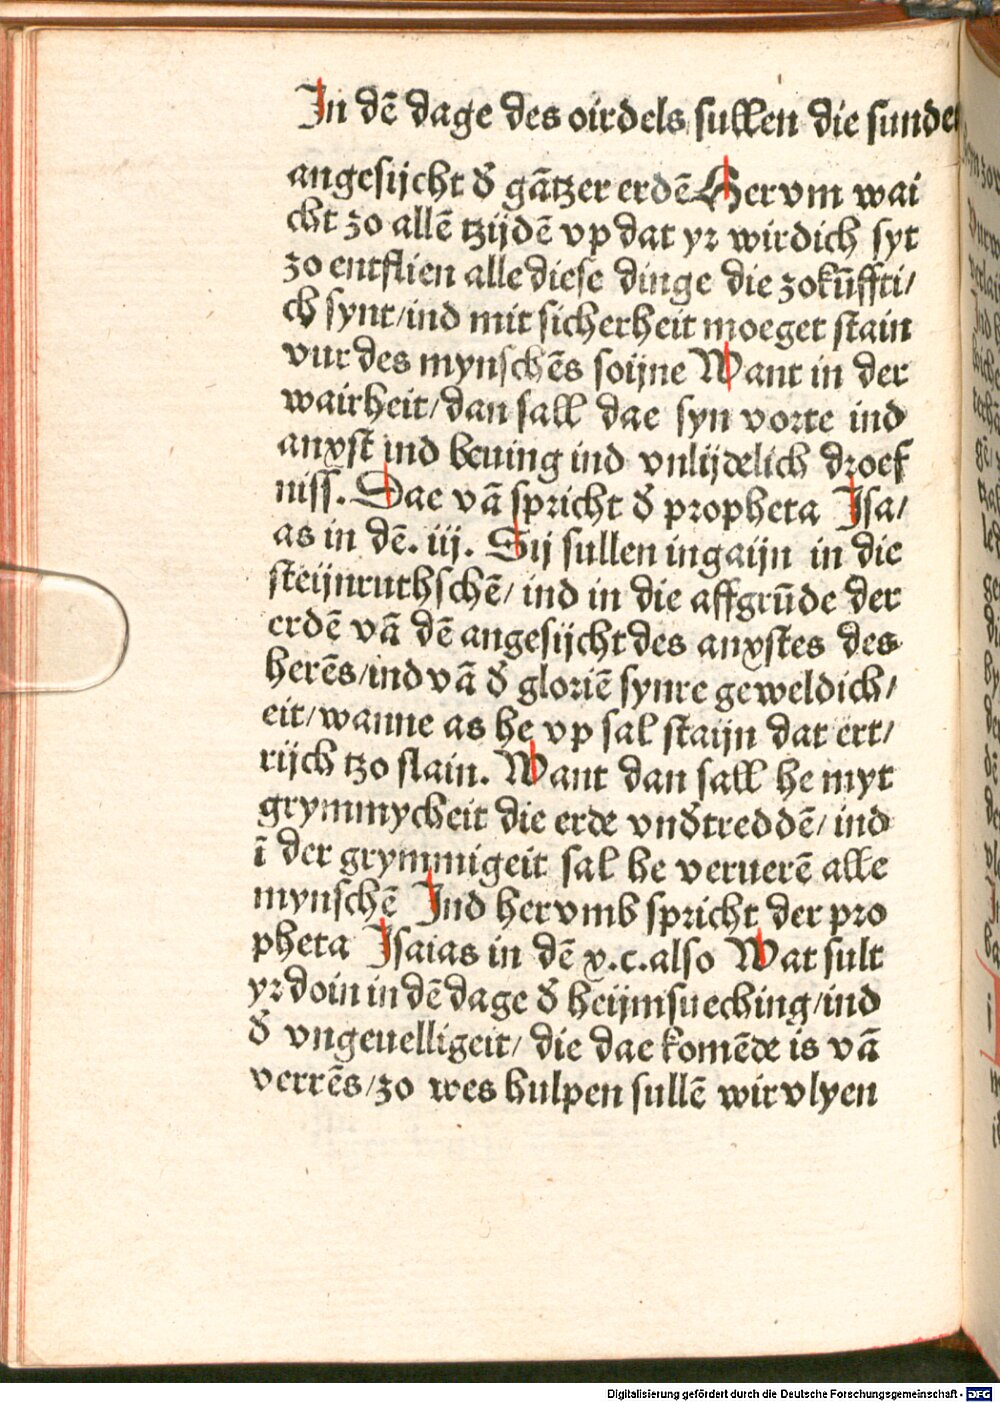 In dē dage des oirdels sullen die sunder
angesijcht đ gātzer erdē Hervm wai
cht zo allē tzijdē vp dat yr wirdich syt
zo entflien alle diese dinge die zokūffti/
ch synt/ind mit sicherheit moeget stain
vur des mynschēs soijne Want in der
wairheit/dan sall dae syn vorte ind
anxst ind beuing ind vnlijdelich droef
niss. Dae vā spricht đ propheta Isa/
as in dē. iij. Sij sullen ingaijn in die
steijnruthschē/ ind in die affgrūde der
erdē vā dē angesijcht des anxstes des
herēs/ind vā đ gloriē synre geweldich/
eit/wanne as he vp sal staijn dat ert/
rijch tzo slain. Want dan sall he myt
grymmycheit die erde vnđtreddē/ ind
ī der grymmigeit sal he veruerē alle
mynschē Ind hervmb spricht der pro
pheta Isaias in dē x.c.also Wat sult
yr doin in dē dage đ heijmsueching/ind
đ vngeuelligeit/ die dae komēde is vā
verrēs/zo wes hulpen sullē wir vlyen
Digitalisierung gefördert durch die Deutsche Forschungsgemeinschaft - DFG